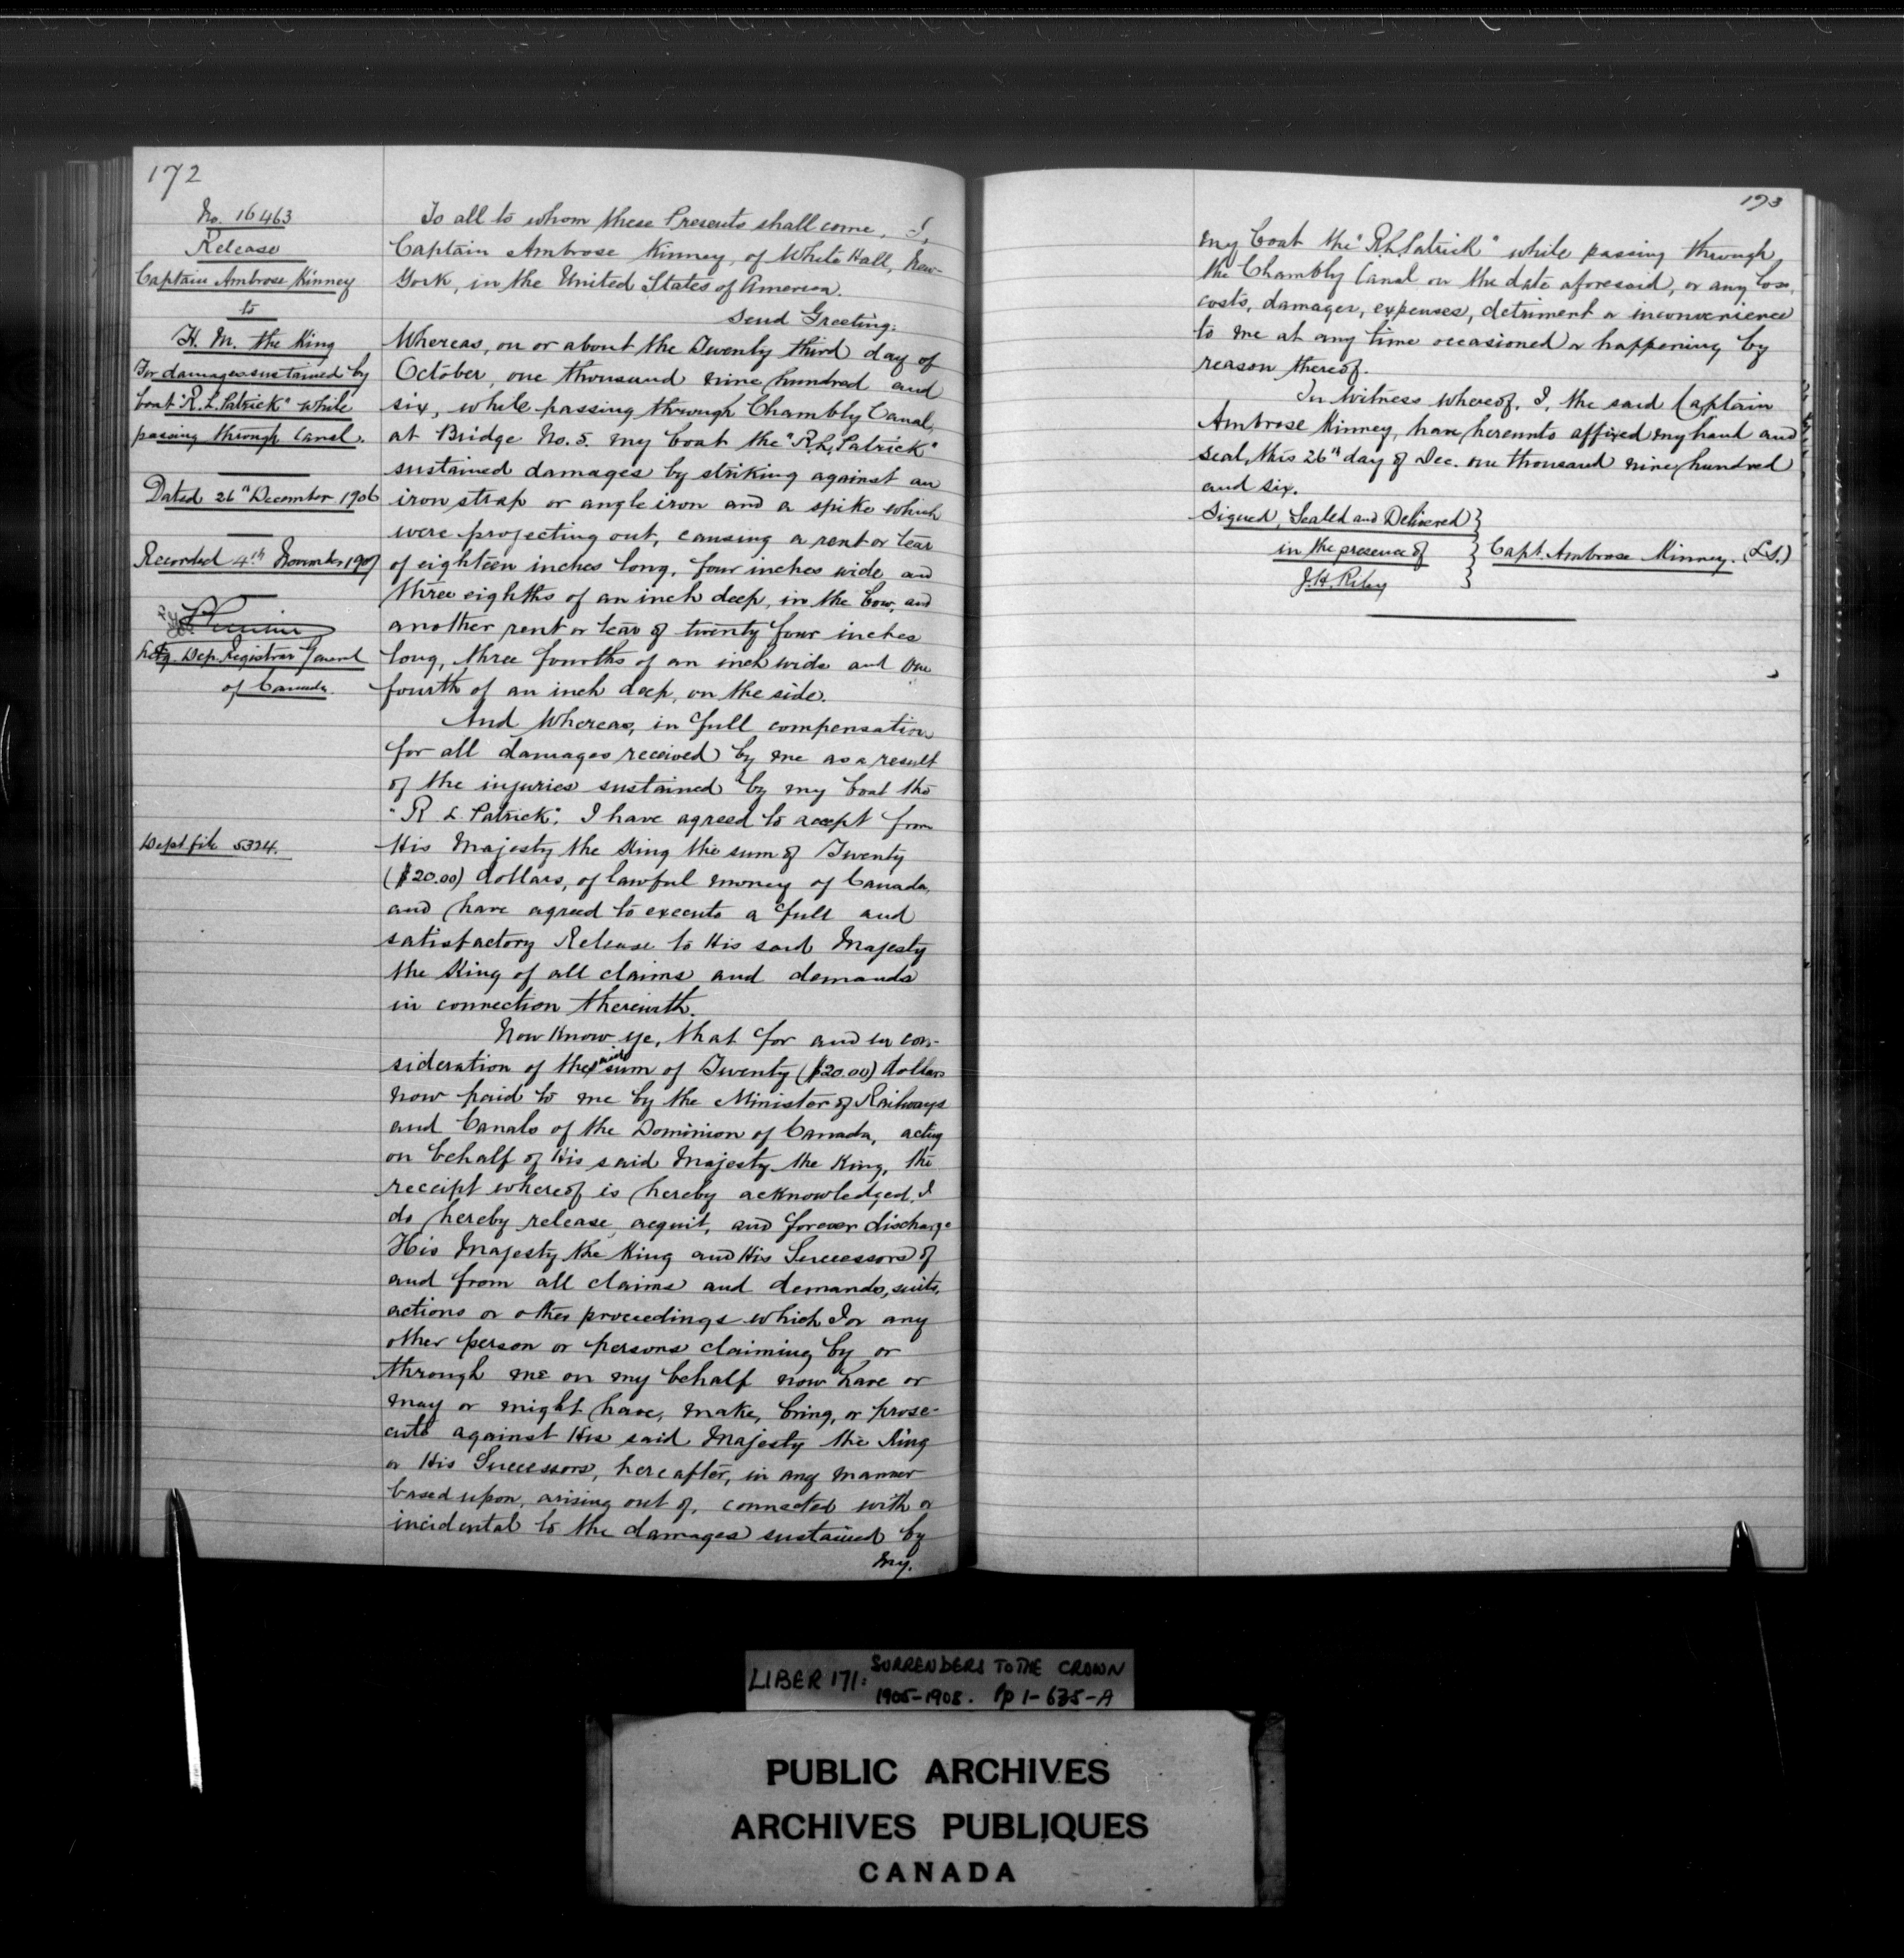 172
No. 16463
Release
Captain Ambrose Kinney
to
H. M. the King
For damages sustained by
boat "R. L. Patrick" while
passing through Canal.
Dated 26th December 1906
Recorded 4th November 1907
Actg. Dep. Registrar General
of Canada.
Dept file 5324.
To all to whom these Presents shall come, I,
Captain Ambrose Kinney, of White Hall, New-
York, in the United States of America.
Send Greeting:
Whereas, on or about the Twenty third day of
October, one thousand nine hundred and
six, while passing through Chambly Canal,
at Bridge No. 5. my boat the "R. L. Patrick"
sustained damages by striking against an
iron strap or angle iron and a spike which
were projecting out, causing a rent or tear
of eighteen inches long, four inches wide and
three eighths of an inch deep, in the bow, and
another rent or tear of twenty four inches
long, three fourths of an inch wide and one
fourth of an inch deep, on the side.
And Whereas, in full compensation
for all damages received by me as a result
of the injuries sustained by my boat the
"R L. Patrick", I have agreed to accept from
His Majesty the King the sum of Twenty
($20.00) dollars, of lawful money of Canada,
and have agreed to execute a full and
satisfactory Release to His said Majesty
the King of all claims and demands
in connection therewith.
Now Know ye, that for and in con-
sideration of the said sum of Twenty ($20.00) dollars
now paid to me by the Minister of Railways
and Canals of the Dominion of Canada, acting
on behalf of His said Majesty the King, the
receipt whereof is hereby acknowledged, I
do hereby release, acquit, and forever discharge
His Majesty the King and His Successors of
and from all claims and demands, suits,
actions or other proceedings which I or any
other person or persons claiming by or
through me on my behalf now have or
may or might have, make, bring, or prose-
cute against His said Majesty the King
or His Successors, hereafter, in any manner
based upon, arising out of, connected with or
incidental to the damages sustained by
my.
173
my boat the "R. L. Patrick" while passing through
the Chambly Canal on the date aforesaid, or any loss,
costs, damages, expenses, detriment or inconvenience
to me at any time occasioned or happening by
reason thereof.
In Witness Whereof, I, the said Captain
Ambrose Kinney, have hereunto affixed my hand and
seal, this 26th day of Dec. one thousand nine hundred
and six.
Signed, Sealed and Delivered }
in the presence of } Capt. Ambrose Kinney. (L.S.)
J. H. Riley }
LIBER 171: SURRENDERS TO THE CROWN
1905-1908. Pp 1-635-A
PUBLIC ARCHIVES
ARCHIVES PUBLIQUES
CANADA